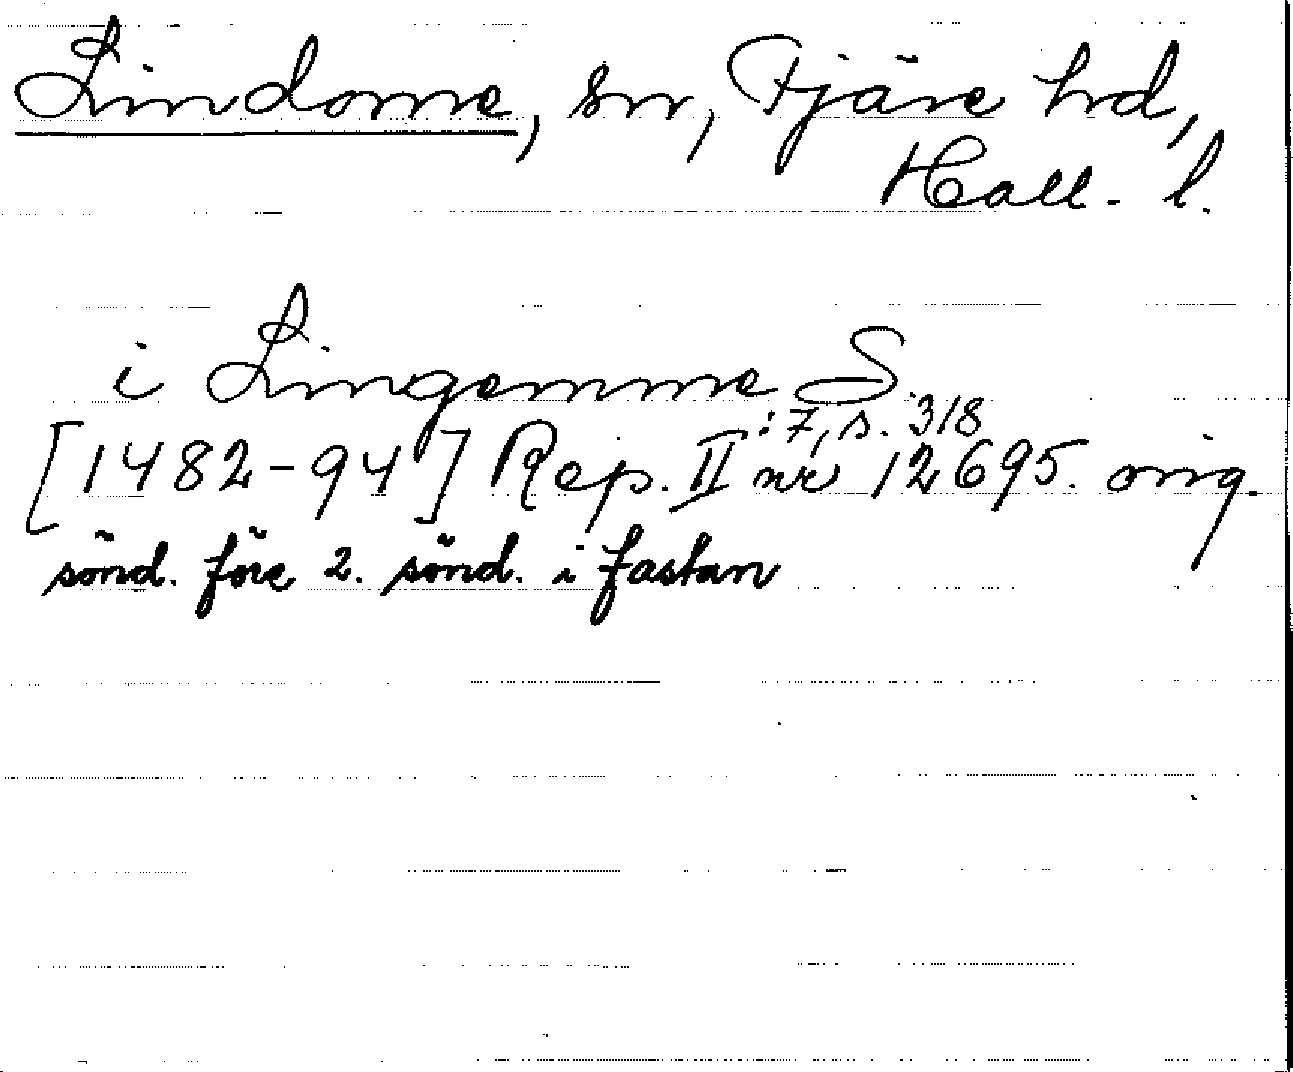 Lindome, sn, Fjäre hd,
Hall. l.
i Lingemme S.
[1482-94] Rep. II :7, s. 318 nr 12695. orig.
sönd. före 2. sönd. i fastan